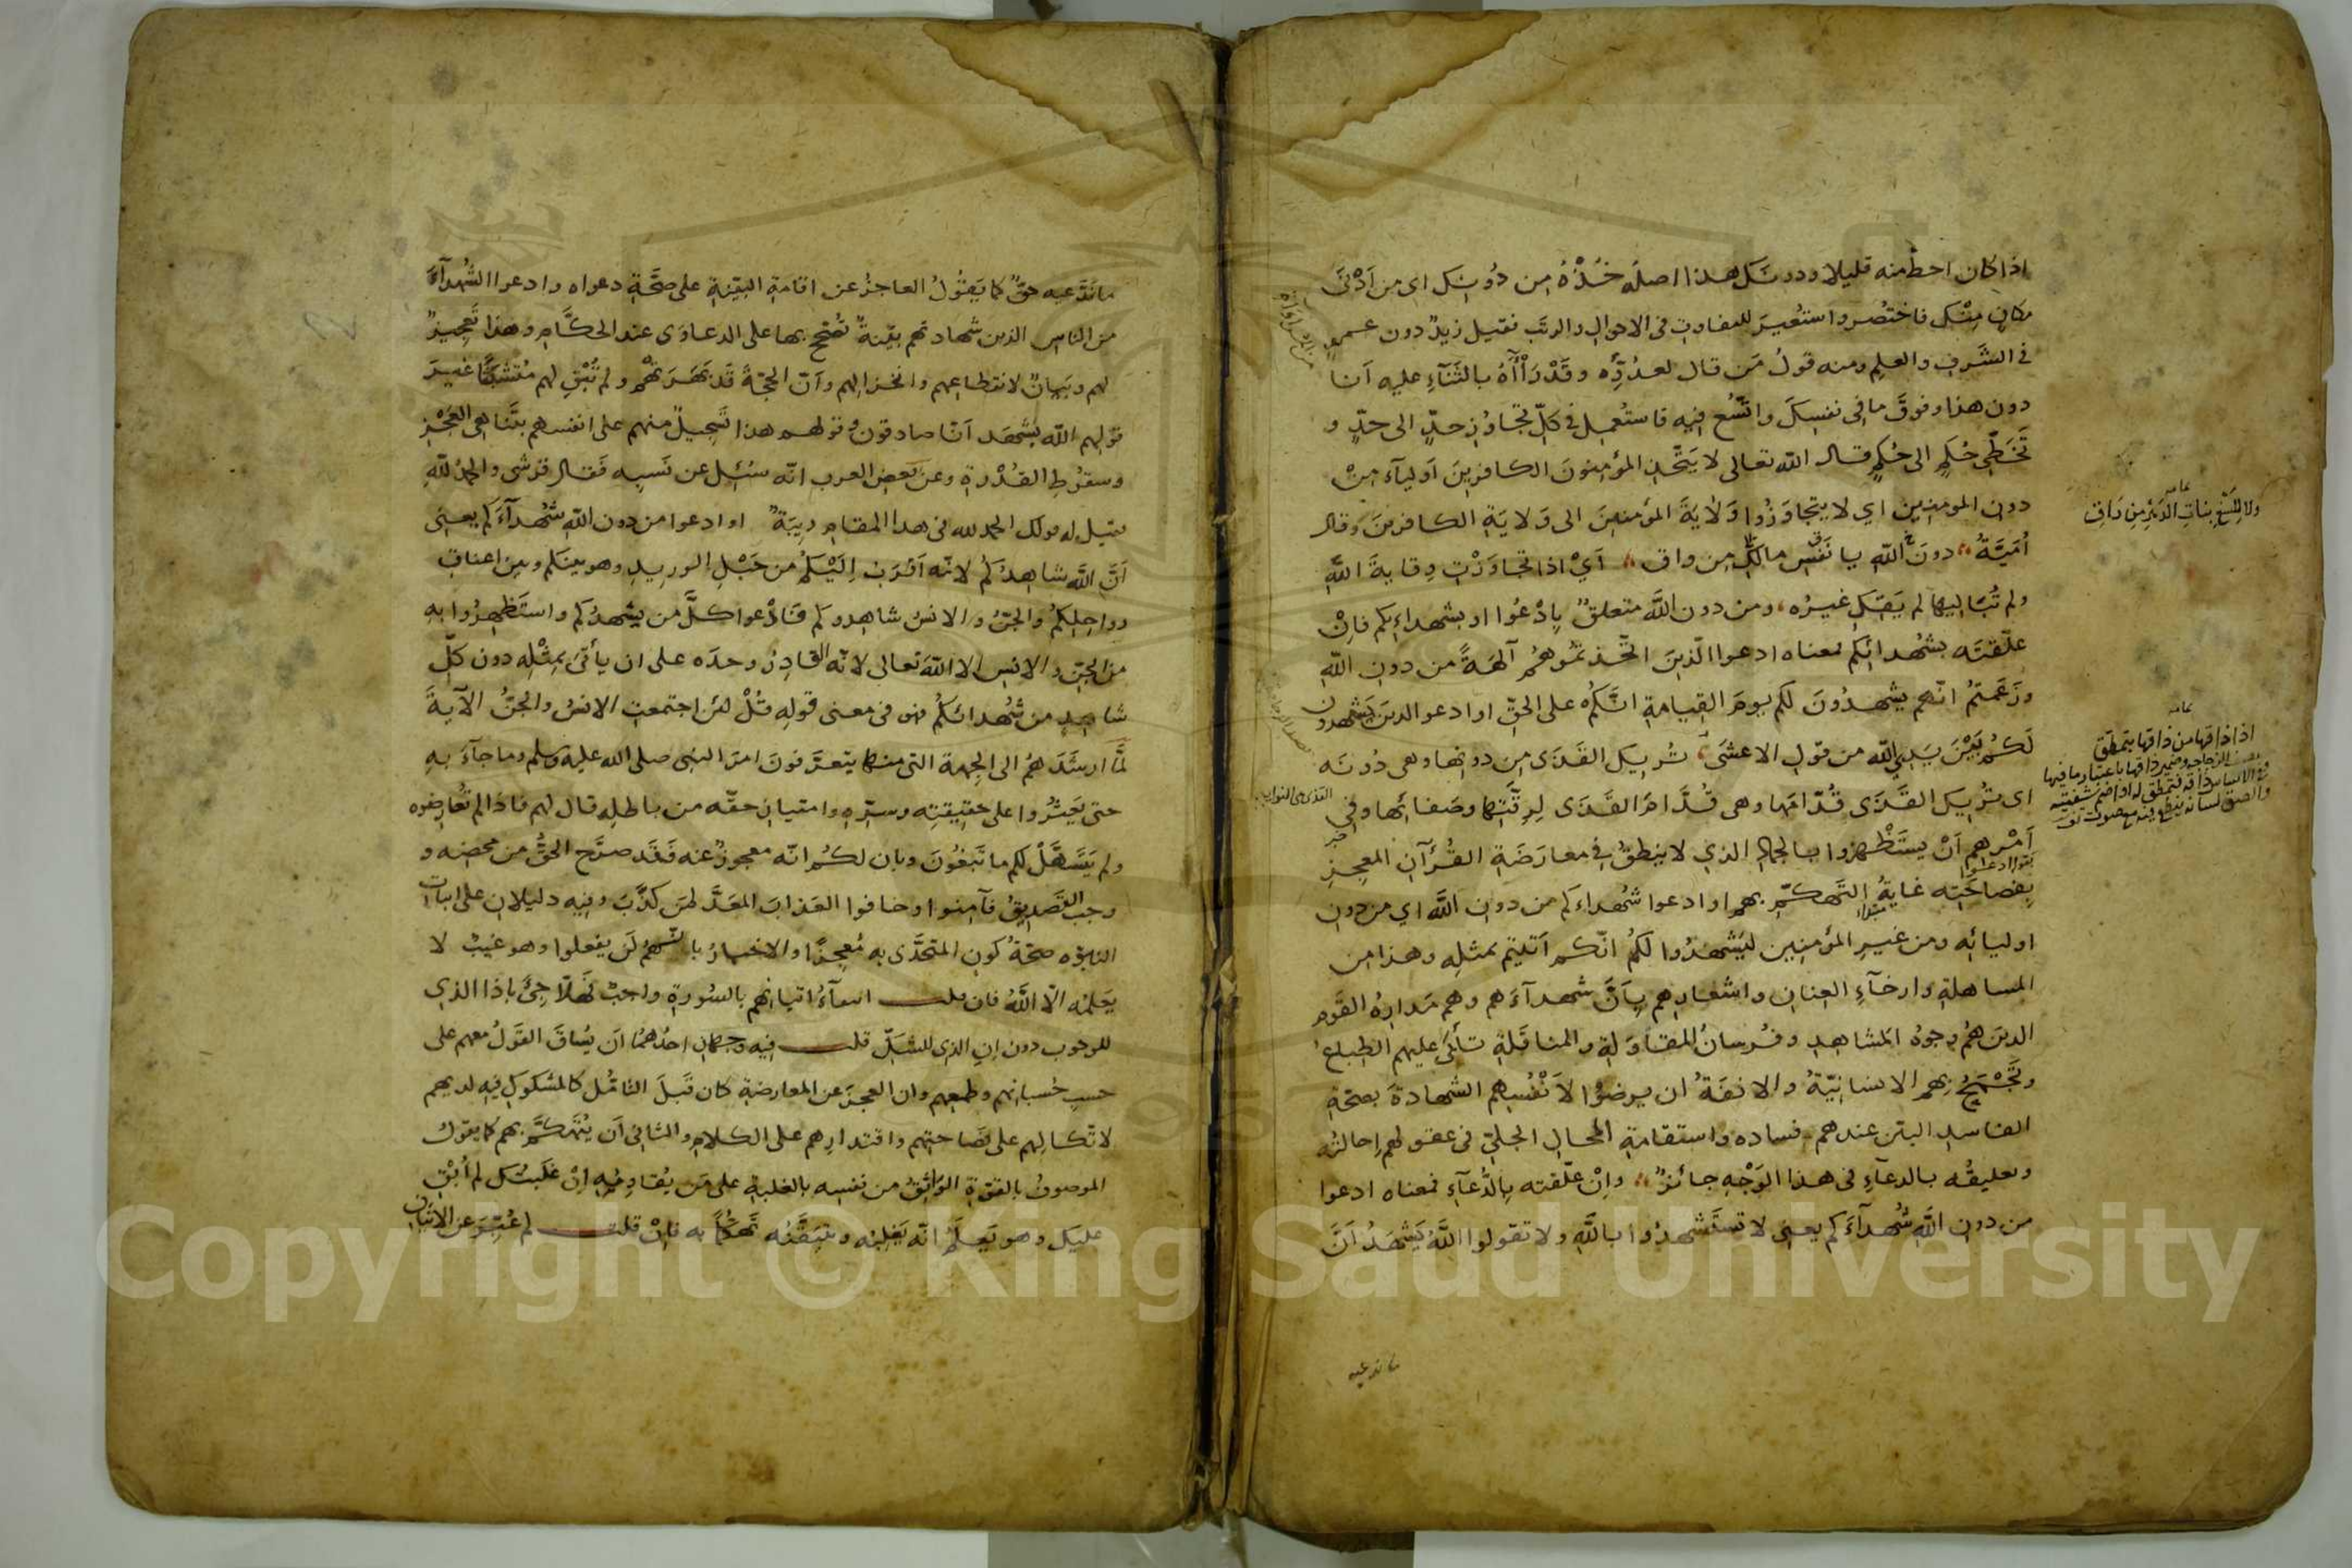 اذا كان احط منه قليلا ودونك هذا اصله خُذْهُ من دُونِك اى من اَدْنَى
مكان مِنْك فاختُصر واستُعير للتفاوت فى الاحوال والرتَب فقيل زيدٌ دون عمرٍو
فى الشَّرفِ والعلم ومنه قولُ مَن قال لعدُوِّه وقَدْ رَاْاٰهُ بالثَّنَآءِ عليه اَنا
دون هذا وفوقَ ما فى نفسِكَ واتُّسع فيه فاستُعمِل فى كلّ تجاوُزِ حدٍّ الى حدٍّ و
تَخَطِّى حُكمٍ الى حُكمٍ قال الله تعالى لا يَتَّخذِ المؤمنونَ الكافرينَ اَوليآءَ مِنْ
دون المومنين اى لا يتجاوَزُوا وَلَايةَ المؤمنينَ الى وَلايَةِ الكافرينَ وقال
اُمَيَّةُ دونَ اللهِ يا نَفْس مالَكِ من واق اَىْ اذا تجاوَزْتِ وِقايةَ اللهِ
ولم تُبَاليها لم يَقِكِ غيرُه ومن دون اللهِ متعلقٌ بِادْعُوا او بشهداءِكم فاِنْ
علّقتَه بشُهدائكم فمعناه ادعوا الّذينَ اتّخذتمُوهُم آلهةً من دون الله
وزَعَمتُم انّهم يشهدُونَ لكم يومَ القيامةِ انَّكم على الحقّ او ادعوا الذين يَشهدون
لَكُم بَيْنَ يَدَىِ الله من قول الاعشَى تُريكَ القَذَى مِن دونها وهى دُونَه
اى تُريكَ القَذَى قُدّامَها وهى قُدَّامَ القَذَى لِرِقَّتِها وصَفائها وفى
اَمْرِهم اَنْ يستَظْهِروا بالجماد الذى لا ينطقُ فى معارَضَةِ القُرْآن المعجزِ
بِفصاحَتِه غايةُ التَّهكُّمِ بهم او ادعوا شُهداءكم من دون الله اى من دون
اوليائه ومن غيرِ المؤمنين ليَشهدُوا لكُم انّكم اَتيتم بمثلِه وهذا من
المساهلةِ وارخآءِ العِنان واشعارِهم بِاَنَّ شهدآءَهم وهم مَدارِهُ القَوم
الذين هُم وجوهُ المشاهِد وفُرسانُ المقاوَلةِ والمناقَلةِ تاْبَى عليهم الطِباع
وتَجْمَحُ بهم الانسانيّةُ والانفَةُ ان يرضَوا لاَنْفُسِهم الشهادةَ بصحّةِ
الفاسدِ البيّن عندهم فساده واستقامةِ المحال الجلىّ فى عقولهم اِحالتُه
وتعليقُه بالدعآءِ فى هذا الوَجْهِ جائزٌ واِنْ علّقته بالدُّعآءِ فمعناه ادعوا
من دون اللهِ شُهدآءَكم يعنى لا تستَشهِدُوا باللهِ ولا تقولوا اللهُ يَشهَدُ اَنَّ
ما ندعيه
ما نَدَّعيه حقٌّ كما يَقُولُ العاجزُ عن اقامةِ البيّنةِ على صحَّةِ دعواه وادعوا الشُهدآءَ
من الناس الذين شهادتهم بيّنةٌ تُصَحَّح بها على الدعاوَى عند الحكَّامِ وهذا تَعجيزٌ
لهم وبَيانٌ لانقطاعهم وانخزالهم واَنّ الحجّةَ قَد بَهَرَتْهُم ولم تُبْقِ لهم مُتشبَّثًا غيرَ
قولهم الله يشهَد اَنّا صادقون وقولهم هذا تَسجيلٌ منهم على انفسهم بتَناهى العَجْزِ
وسقُوطِ القُدْرةِ وعن بعض العرب انّه سُئِل عن نَسبِه فَقال قرشى والحمدُ للهِ
فقيل له قولك الحمد لله فى هذا المقام ريبَةٌ او ادعوا من دون اللهِ شُهدآءَكم يعنى
اَنَّ الله شاهِدُكُم لانّه اَقرَبُ اِليْكُم من حَبْلِ الوريدِ وهو بينكم وبين اعناقِ
رواحِلِكمُ والجِنُّ والانسُ شاهدوكم فَادْعوا كلَّ مَن يشهَدُكم واستَظهِرُوا به
من الجِنّ والانسِ الا اللهَ تعالى لانّه القادِرُ وحدَه على ان يأتىَ بِمثْلِه دون كلِّ
شاهِدٍ من شُهدائكُم فهو فى معنى قولِه قُلْ لئن اجتمعتِ الانسُ والجنُّ الآيةَ
لَمَّا ارشَدَهُم الى الجِهةِ التى منها يتعرّفونَ امرَ النبى صلى الله عليه وسلم وما جآءَ بهِ
حتى يَعثُروا على حقيقتِه وسرّه وامتيازِ حقِّه من باطلِه قال لهم فاذا لم تُعارِضوه
ولم يَتَسَهَّلْ لكم ما تَبغُونَ وبان لكُم انّه معجوزٌ عنه فَقَد صرَّح الحقُّ من محضه و
وجب التصديقُ فآمِنوا وخافوا العَذابَ المعَدَّ لمن كذَّبَ وفيه دليلان على اثبات
النبوّه صحّةُ كونِ المتحدَّى به مُعجزًا والاخبارُ بانّهُم لَن يفعلوا وهو غيبٌ لا
يَعلمُه الّا اللهُ فان قلت انتفآءُ اتيانِهم بالسُورةِ واجبٌ فهَلّا جِئَ بِاِذا الذى
للوجوب دون اِن الذى للشَكّ قلت فيه وجهان احدُهمُا اَن يُساقَ القَولُ معهم على
حسبِ حُسبانِهم وطمعِهم وان العجزَ عن المعارضةِ كان قَبلَ التامّلِ كالمشكوكِ فيهِ لديهم
لاتّكالِهم على فَصاحتِهم واقتدارِهم على الكلامِ والثانى اَن يُتَهكّمَ بهم كما يقول
الموصوفُ بالقوّةِ الواثِقُ من نفسِه بالغلبةِ على مَن يُقاومُه اِنْ غَلبتُك لم اُبْقِ
عليك وهو يَعلمُ انّه يَغلِبُه ويتيَقّنُه تَهكُّمًا به فاِن قلت لم عُبِّرَ عن الاتيان
Copyright © King Saud University